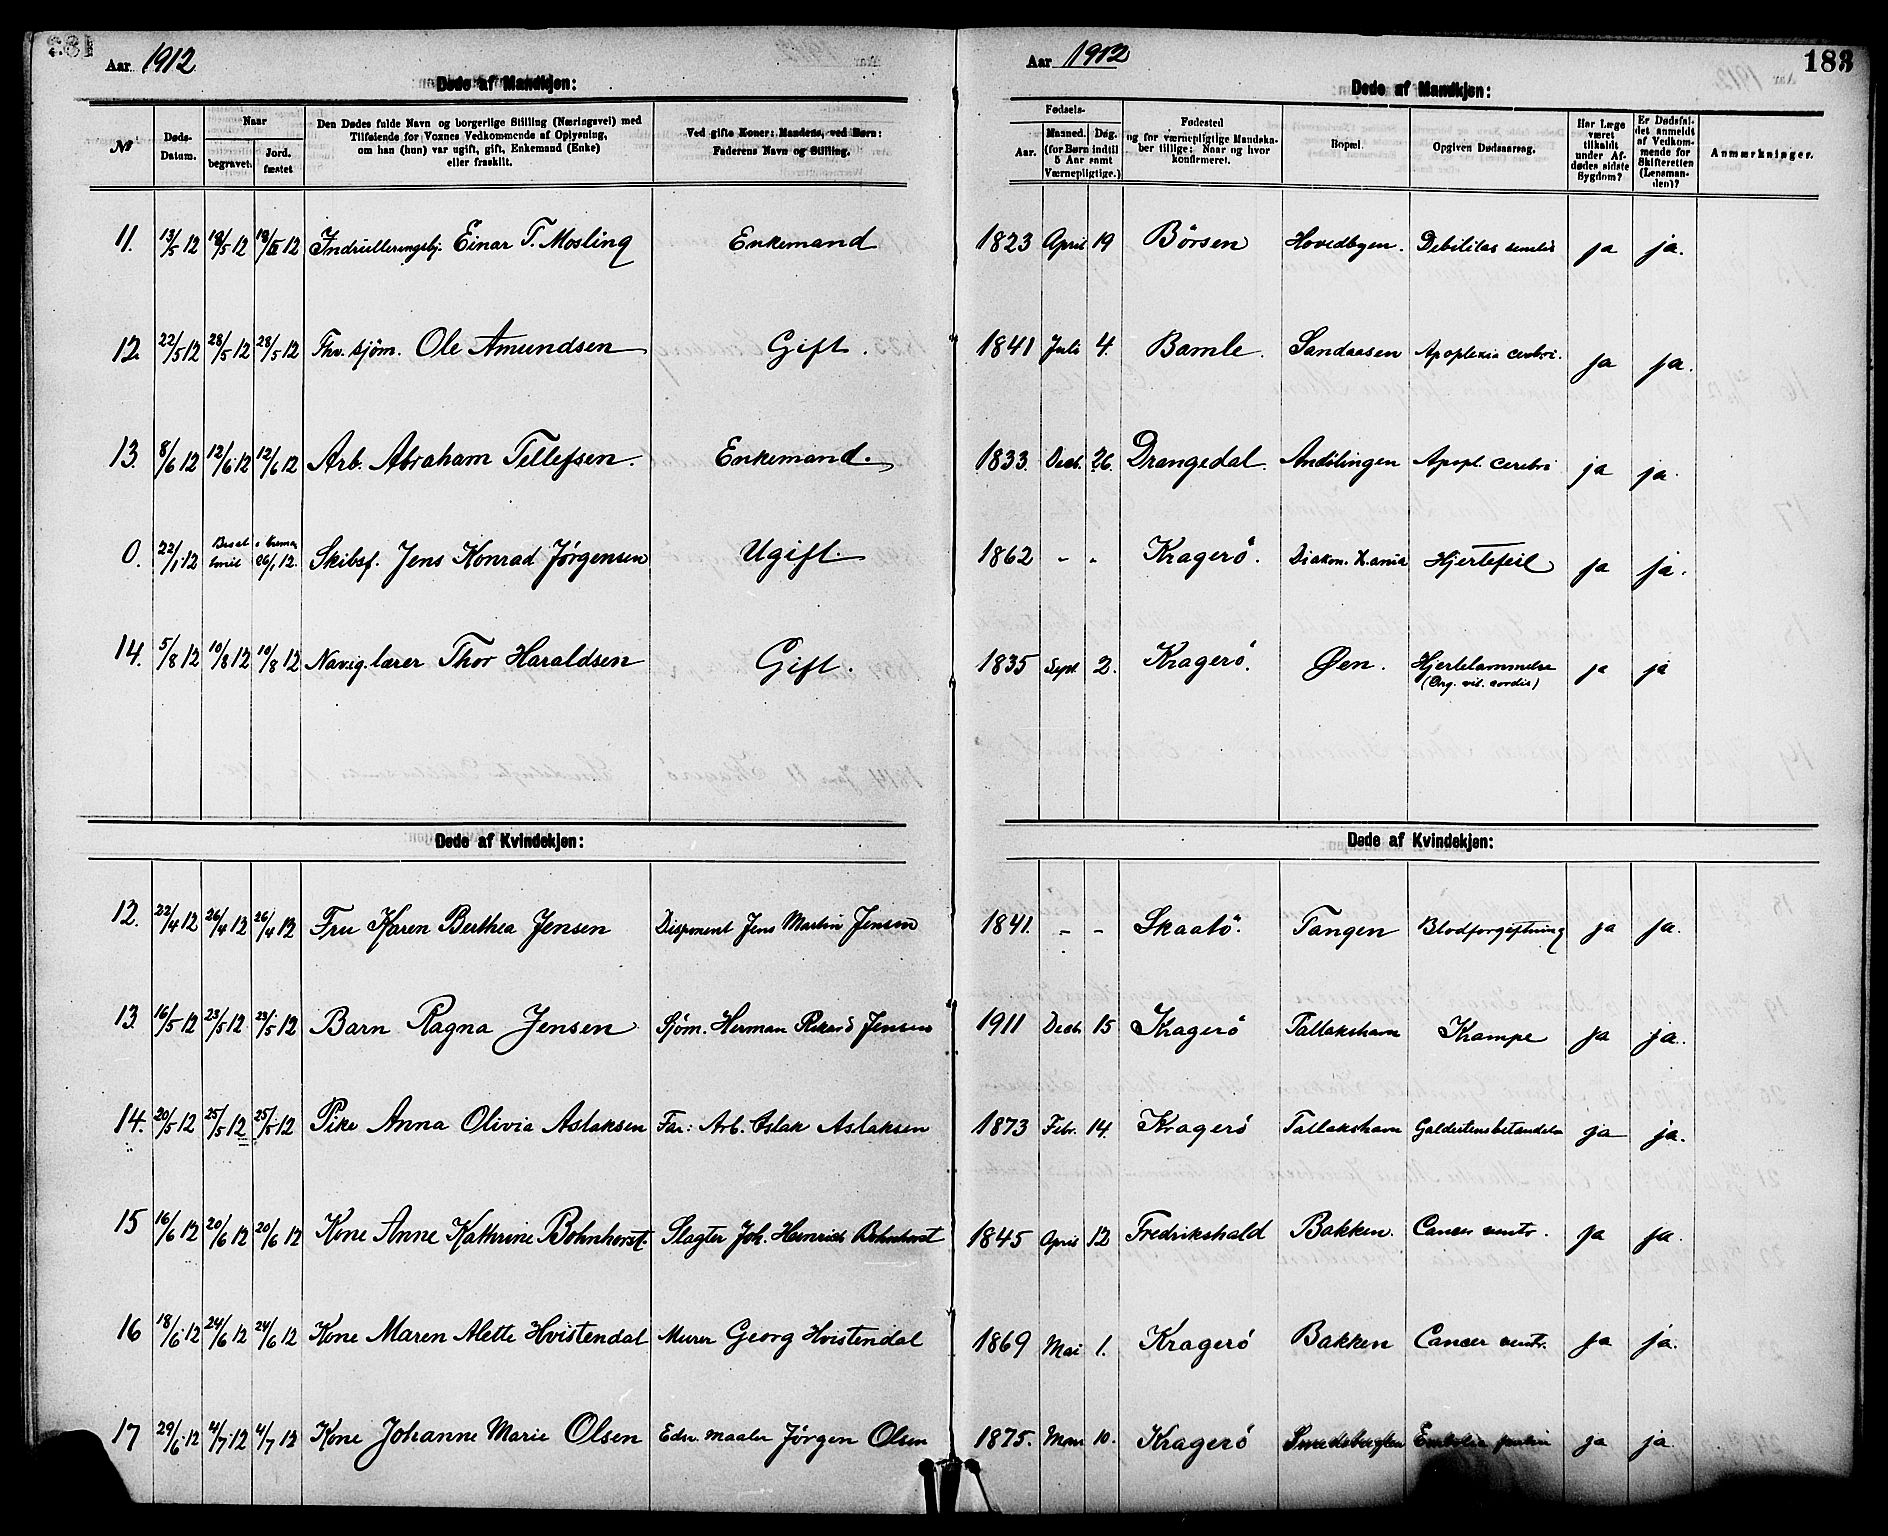 Aar 1912
Døde af Mandkjøn:
№ Døds-Datum. Naar begravet. Jord.fæstet Den Dødes fulde Navn og borgerlige Stilling (Næringsvei) med Tilføiende for Voxnes Vedkommende af Oplysning, om han (hun) var ugift, gift, Enkemand (Enke) eller fraskilt. Ved gifte Koner: Mandens, ved Børn: Faderens Navn og Stilling.
11. 13/5 12 18/5 12 Indrulleringsbj. Einar T. Mosling Enkemand
12. 22/5 12 28/5 12 28/5 12 Thv. sjöm. Ole Amundsen Gift.
13. 8/6 12 12/6 12 12/6 12 Arb. Abraham Tellefsen. Enkemand.
0. 22/1 12 26/1 12. Skibsf. Jens Konrad Jørgensen Ugift.
14. 5/8 12 10/8 12 10/8 12 Navig.lærer Thor Haraldsen Gift.
Døde af Kvindekjøn:
12. 22/4 12 26/4 12 26/4 12 Fru Karen Berthea Jensen Disponent Jens Martin Jensen
13. 16/5 12 23/5 12 23/5 12 Barn Ragna Jensen Sjöm. Herman Rikard Jensen
14. 20/5 12 25/5 12 25/5 12 Pike Anna Olivia Aslaksen Far: Arb. Aslak Aslaksen
15 16/6 12 20/6 12 20/6 12 Kone Anne Kathrine Bohnhorst. Slagter Joh. Heinrich Bohnhorst
16 18/6 12 24/6 12 24/6 12 Kone Maren Alette Hvistendal Murer Georg Hvistendal
17 29/6 12 4/7 12 4/7 12 Kone Johanne Marie Olsen Edsv. maaler Jørgen Olsen
Aar 1912
183
Døde af Mandkjøn:
Fødsels- Aar. Maaned. Dag. (for Børn indtil 5 Aar samt Værnepligtige.) Fødested og for værnepligtige Mandskaber tillige: Naar og hvor konfirmeret. Bopæl. Opgiven Dødsaarsag. Har Læge været tilkaldt under Afdødes sidste Sygdom? Er Dødsfaldet anmeldt af Vedkommende for Skifteretten (Lensmanden)? Anmærkninger.
1823 April 19 Børsen Hovedbyen. Debilitas senilis ja ja.
1841 Juli 4. Bamle. Sandaasen Apoplexia cerebri. ja ja.
1833. Decb. 26. Drangedal. Andölingen Apopl. cerebri ja ja.
1862 - - Kragerö. Diakon. K.ania Hjertefeil ja ja.
1835 Sept. 2. Kragerö. Øen. Hjertelammelse ja ja
(Org. vit. cordis)
Døde af Kvindekjøn:
1841. - - Skaatö. Tangen Blodforgiftning ja ja.
1911 Decb. 15 Kragerö Tallakshavn Krampe ja ja.
1873 Febr. 14. Kragerö Tallakshavn Galdestensbetændelse ja ja.
1845 April 12 Fredrikshald Bakken. Cancer ventr. ja ja.
1869 Mai 1. Kragerö Bakken Cancer ventr. ja ja.
1875. Mars 10. Kragerö Smedsbugten ja ja.